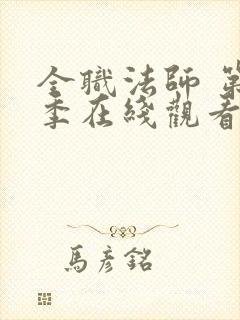 全職法師 第
季在綫觀看
馬彥銘